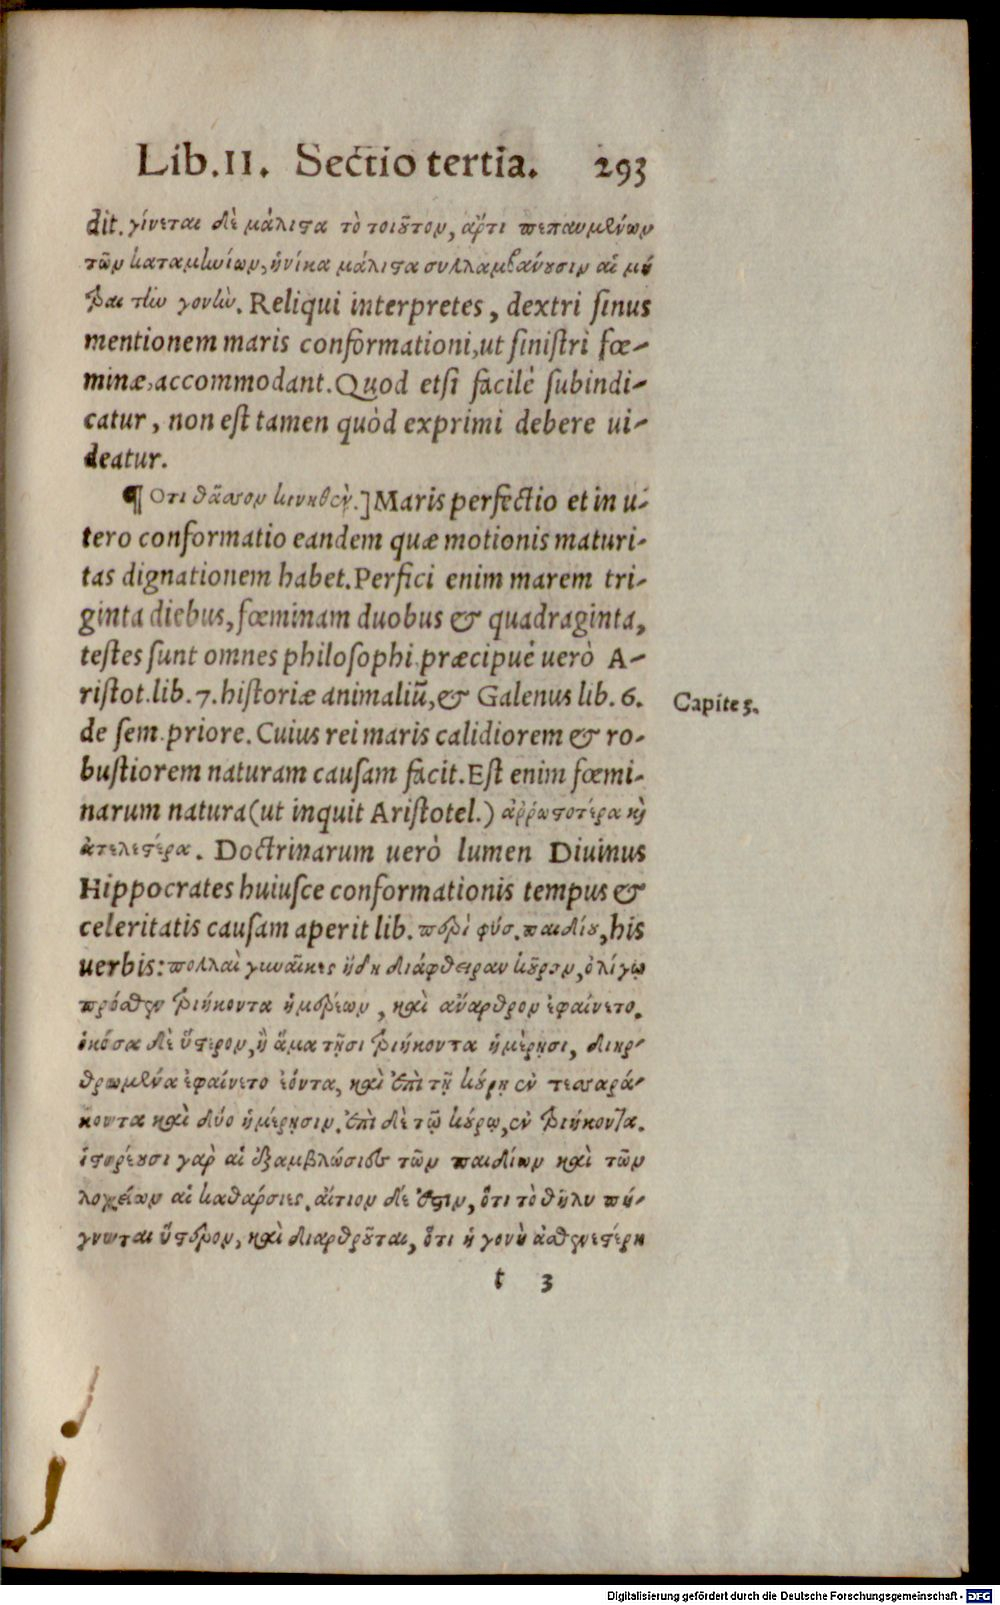 Lib. II. Sectio tertia. 293
dit. γίνεται δὲ μάλιϛα τὸ τοιοῦτον, ἄρτι πεπαυμένων
τῶν καταμηνίων, ἡνίκα μάλιϛα συλλαμβάνουσιν αἱ μῆ
τραι τὴν γονὴν. Reliqui interpretes, dextri ſinus
mentionem maris conformationi, ut ſiniſtri fœ-
minæ, accommodant. Quod etſi facilè ſubindi-
catur, non eſt tamen quòd exprimi debere ui-
deatur.
¶ Οτι θᾶσσον κινηθὲν.] Maris perfectio et in u-
tero conformatio eandem quæ motionis maturi-
tas dignationem habet. Perfici enim marem tri-
ginta diebus, fœminam duobus & quadraginta,
teſtes ſunt omnes philoſophi, præcipuè uerò A-
riſtot. lib. 7. hiſtoriæ animaliũ, & Galenus lib. 6.
Capite 5.
de ſem. priore. Cuius rei maris calidiorem & ro-
buſtiorem naturam cauſam facit. Eſt enim fœmi-
narum natura (ut inquit Ariſtotel.) ἀῤῥωϛοτέρα καὶ
ἀτελεϛέρα. Doctrinarum uerò lumen Diuinus
Hippocrates huiuſce conformationis tempus &
celeritatis cauſam aperit lib. περὶ φύσ. παιδίου, his
uerbis: πολλαὶ γυναῖκες ἤδη διάφθειραν κοῦρον, ὀλίγῳ
πρόσθεν τριήκοντα ἡμερέων, καὶ ἄναρθρον ἐφαίνετο.
ὁκόσα δὲ ὕϛερον, ἢ ἅμα τῇσι τριήκοντα ἡμέρῃσι, διηρ-
θρωμένα ἐφαίνετο ἐόντα, καὶ ἐπὶ τῇ κούρῃ ἐν τεσσαρά-
κοντα καὶ δύο ἡμέρῃσιν. ἐπὶ δὲ τῷ κούρῳ, ἐν τριήκοντα.
ἱϛορέουσι γὰρ αἱ ἐξαμβλώσιες τῶν παιδίων καὶ τῶν
λοχείων αἱ καθάρσιες. αἴτιον δέ ἐϛιν, ὅτι τὸ θῆλυ πή-
γνυται ὕϛερον, καὶ διαρθροῦται, ὅτι ἡ γονὴ ἀσθενεϛέρη
t 3
Digitalisierung gefördert durch die Deutsche Forschungsgemeinschaft - DFG